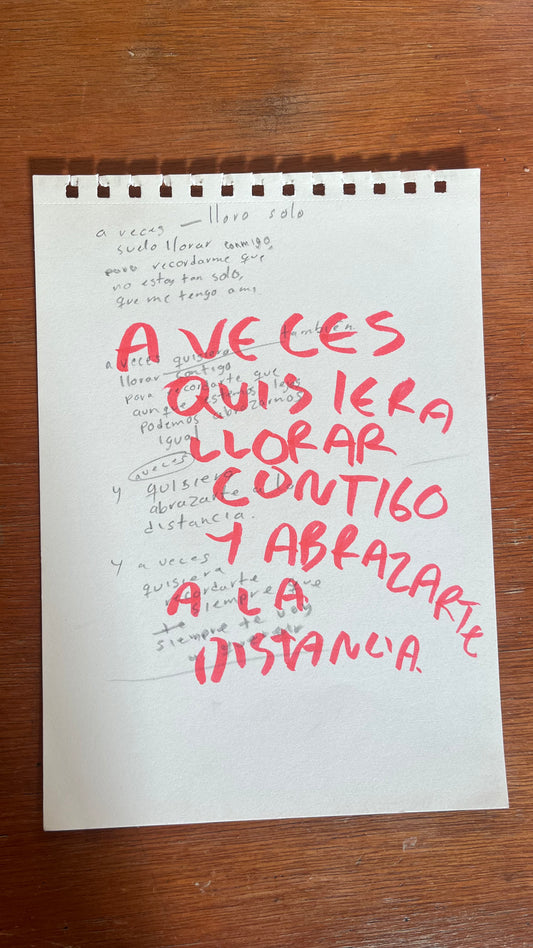 a veces — lloro solo
suelo llorar conmigo,
para recordarme que
no estoy tan solo,
que me tengo a mi,
a veces quisiera también
llorar contigo
para recordarte que
aunque estemos lejos
podemos abrazarnos
igual
a veces
y quisiera
abrazarte a la
distancia.
y a veces
quisiera
recordarte
te siempre que
siempre te voy
a querer
A VECES
QUISIERA
LLORAR
CONTIGO
Y ABRAZARTE
A LA
DISTANCIA.